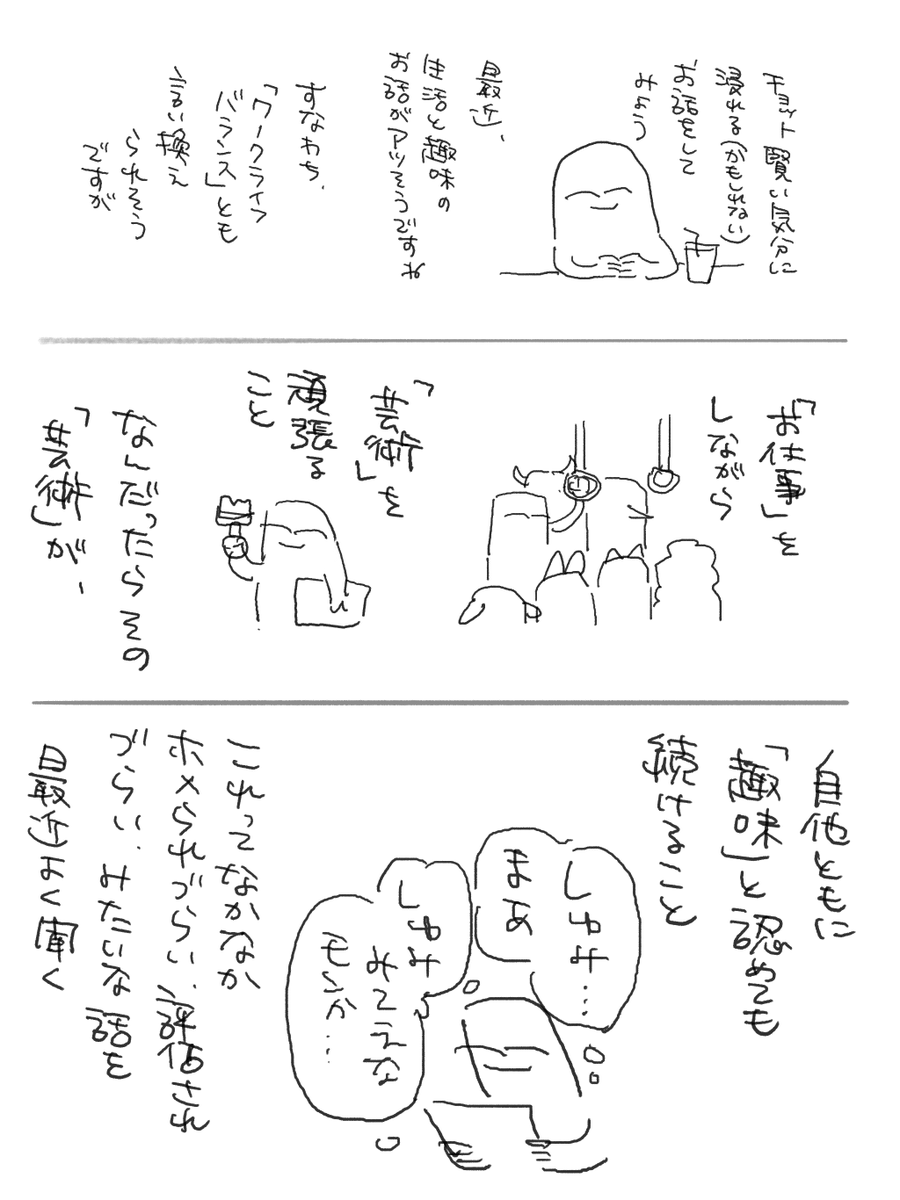 チョット賢い気分に
浸れる(かもしれない)
お話をして
みよう
最近、
生活と趣味の
お話がアツそうですね
すなわち、
「ワークライフ
バランス」とも
言い換え
られそう
ですが
「お仕事」を
しながら
「芸術」を
頑張る
こと
なんだったらその
「芸術」が、
自他ともに
「趣味」と認めても
続けること
しゅみ…
まぁ
しゅみ
みてえな
モンか…
これってなかなか
ホメられづらい、評価され
づらい、みたいな話を
最近よく聞く